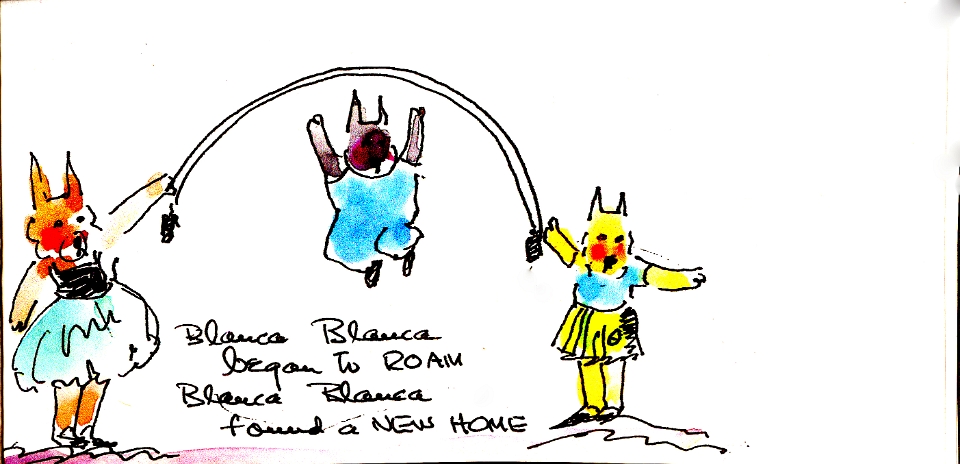 Blanca Blanca
began to ROAM
Blanca Blanca
found a NEW HOME